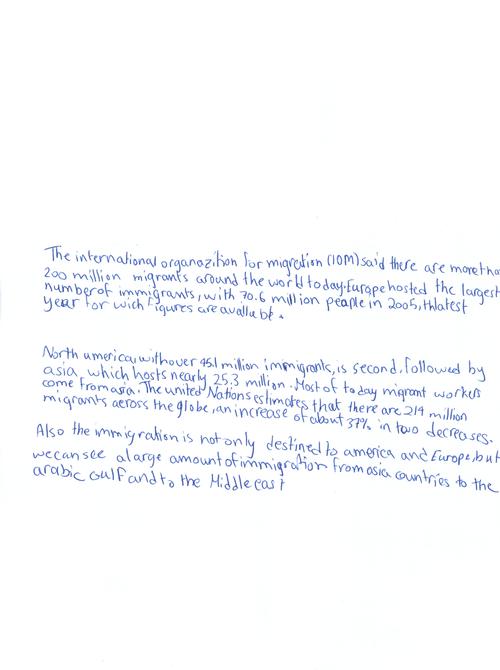 The international organazition for migration (IOM) said there are more tha
200 million migrants around the world today. Europe hosted the largest
number of immigrants, with 70.6 million people in 2005, th latest
year for wich figures are availabe.
North america, with over 45.1 million immigrants, is second, followed by
asia, which hosts nearly 25.3 million. Most of today migrant workers
come from asia. The united Nations estimates that there are 214 million
migrants across the globe, an increase of about 37% in two decreases.
Also the immigration is not only destined to america and Europe, but
we can see a large amount of immigration from asia countries to the
arabic Gulf and to the Middle east